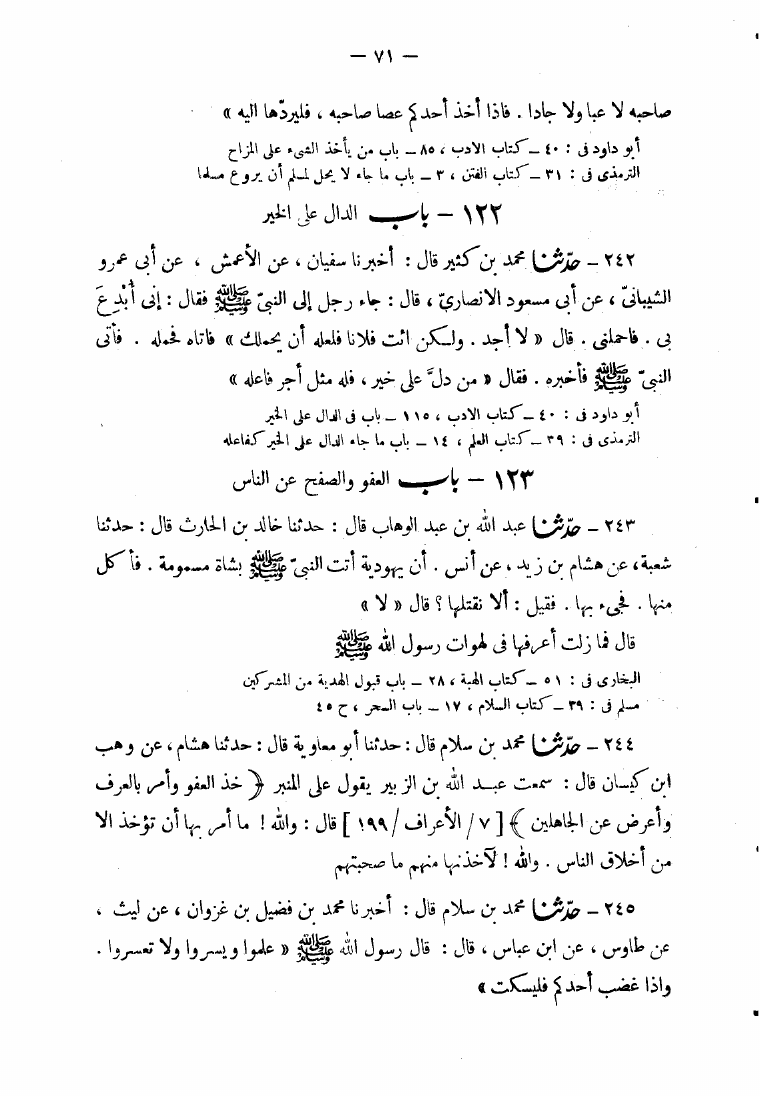 — ٧١ —
صاحبه لا عبا ولا جادا . فاذا أخذ أحدكم عصا صاحبه ، فليردّها اليه »
أبو داود فى : ٤٠ ــ كتاب الادب ، ٨٥ ــ باب من يأخذ الشىء على المزاح
الترمذى فى : ٣١ ــ كتاب الفتن ، ٣ ــ باب ما جاء لا يحل لمسلم أن يروع مسلما
١٢٢ – باب الدال على الخير
٢٤٢ – حدّثنا محمد بن كثير قال : أخبرنا سفيان ، عن الأعمش ، عن أبى عمرو
الشيبانىّ ، عن أبى مسعود الانصارىّ ، قال : جاء رجل إلى النبىّ ﷺ فقال : إنى أُبْدِعَ
بى . فاحملنى . قال « لا أجد . ولكن ائت فلانا فلعله أن يحملك » فاتاه فحمله . فأتى
النبىّ ﷺ فأخبره . فقال « من دلَّ على خير ، فله مثل أجر فاعله »
أبو داود فى : ٤٠ ــ كتاب الادب ، ١١٥ ــ باب فى الدال على الخير
الترمذى فى : ٣٩ ــ كتاب العلم ، ١٤ ــ باب ما جاء الدال على الخير كفاعله
١٢٣ – باب العفو والصفح عن الناس
٢٤٣ – حدّثنا عبد الله بن عبد الوهاب قال : حدثنا خالد بن الحارث قال : حدثنا
شعبة ، عن هشام بن زيد ، عن أنس . أن يهودية أتت النبىّ ﷺ بشاة مسمومة . فأكل
منها . فجىء بها . فقيل : ألا نقتلها ؟ قال « لا »
قال فما زلت أعرفها فى لهوات رسول الله ﷺ
البخارى فى : ٥١ ــ كتاب الهبة ، ٢٨ ــ باب قبول الهدية من المشركين
مسلم فى : ٣٩ ــ كتاب السلام ، ١٧ ــ باب السحر ، ح ٤٥
٢٤٤ – حدّثنا محمد بن سلام قال : حدثنا أبو معاوية قال : حدثنا هشام ، عن وهب
ابن كيسان قال : سمعت عبد الله بن الزبير يقول على المنبر ﴿ خذ العفو وأمر بالعرف
وأعرض عن الجاهلين ﴾ [ ٧ / الأعراف / ١٩٩ ] قال : والله ! ما أمر بها أن تؤخذ الا
من أخلاق الناس . والله ! لآخذنها منهم ما صحبتهم
٢٤٥ – حدّثنا محمد بن سلام قال : أخبرنا محمد بن فضيل بن غزوان ، عن ليث ،
عن طاوس ، عن ابن عباس ، قال : قال رسول الله ﷺ « علموا ويسروا ولا تعسروا .
واذا غضب أحدكم فليسكت »